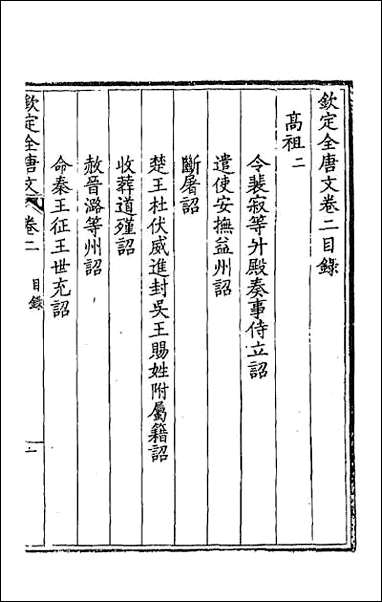 欽定全唐文卷二目錄
高祖二
令裴寂等升殿奏事侍立詔
遣使安撫益州詔
斷屠詔
楚王杜伏威進封吳王賜姓附屬籍詔
收葬道殣詔
赦晉潞等州詔
命秦王征王世充詔
欽定全唐文 卷二 目錄 一